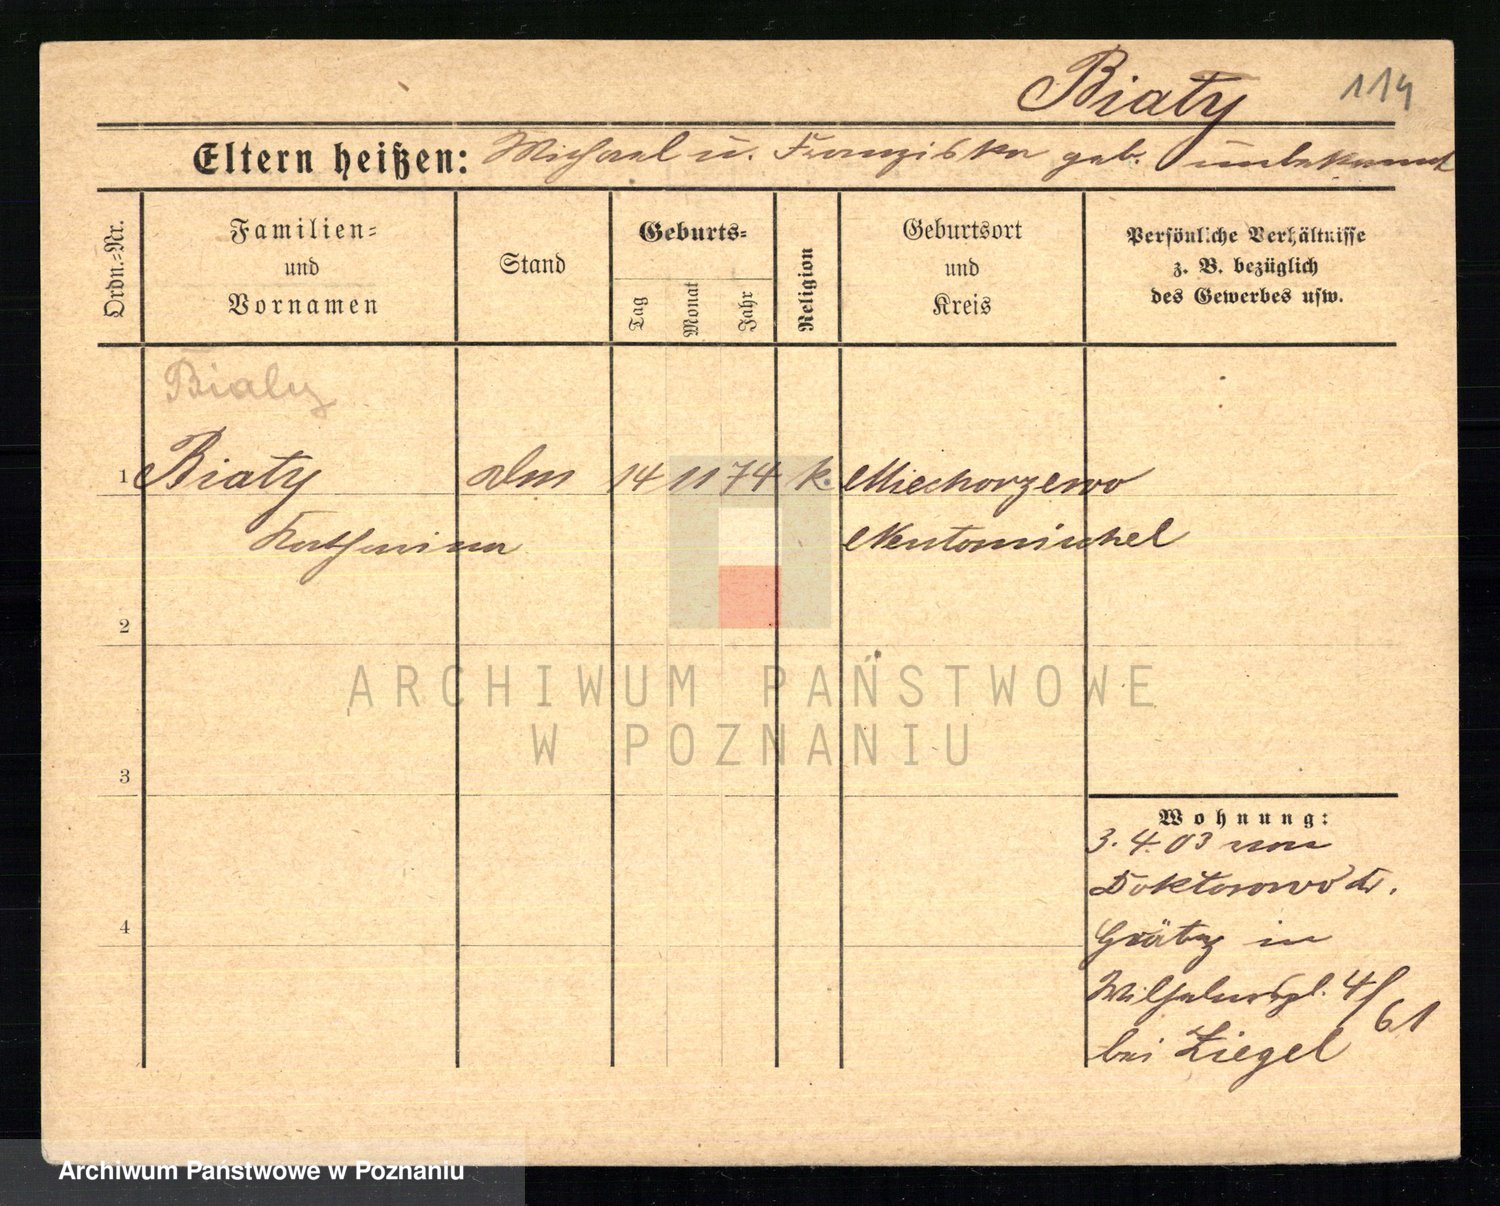 Biały 114
Eltern heißen: Michael u. Franziska geb. unbekannt
Ordn.-Nr.
Familien-
und
Vornamen
Stand
Geburts-
Tag
Monat
Jahr
Religion
Geburtsort
und
Kreis
Persönliche Verhältnisse
z. B. bezüglich
des Gewerbes usw.
Bialy
1 Biały 14 11 74 k. Miechorzewo
Katharina Neutomischel
2
ARCHIWUM PAŃSTWOWE
W POZNANIU
3
Wohnung:
3. 4. 03 von
Doktorowo
4
Grätz in
Wilhelmspl. 4/
61
bei Ziegel
Archiwum Państwowe w Poznaniu